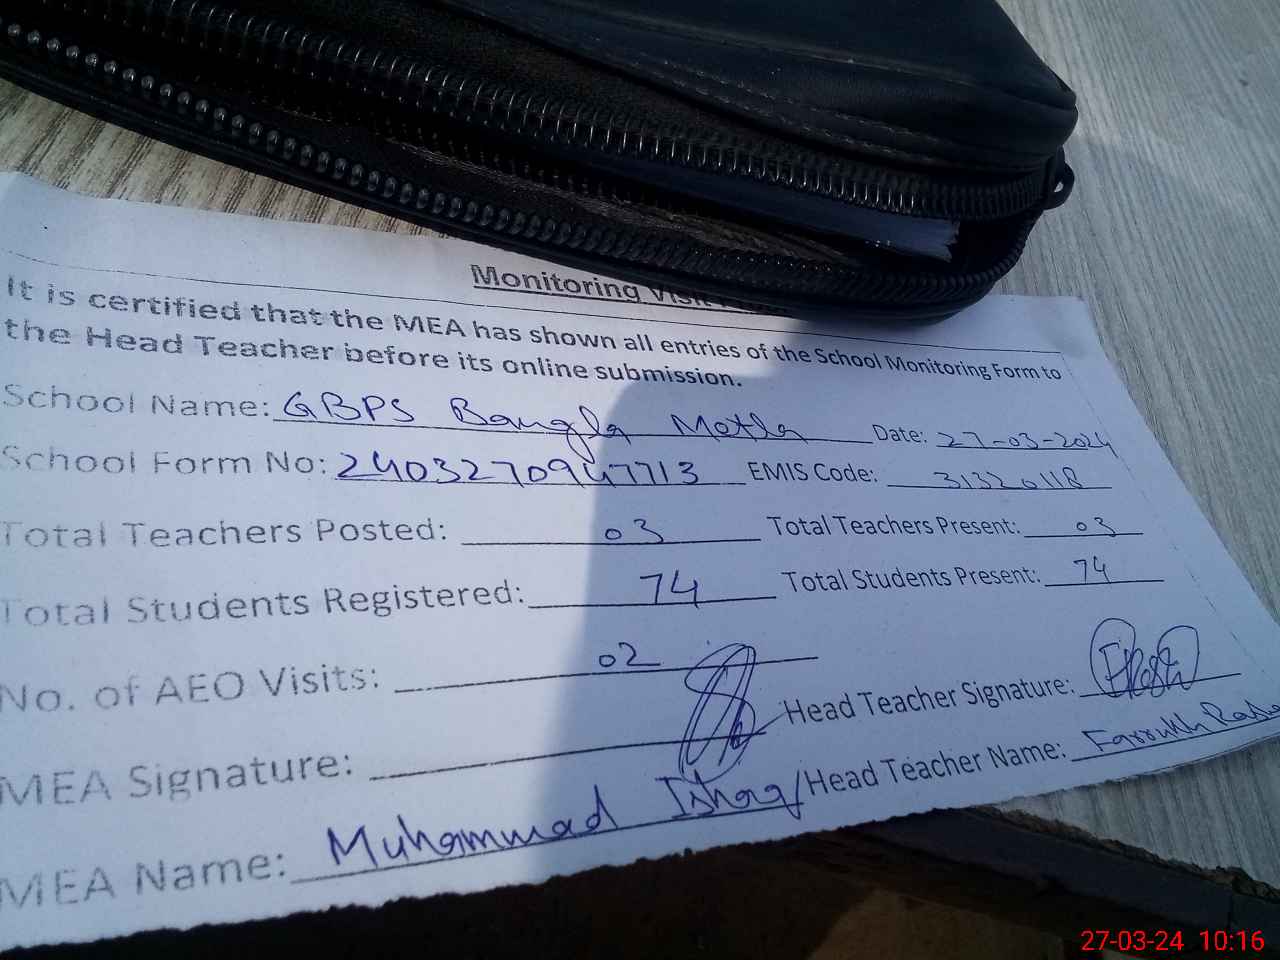 Monitoring Visit
It is certified that the MEA has shown all entries of the School Monitoring Form to
the Head Teacher before its online submission.
School Name: GBPS Bangla Motla Date: 27-03-2024
School Form No: 2403270947713 EMIS Code: 31320118
Total Teachers Posted: 03 Total Teachers Present: 03
Total Students Registered: 74 Total Students Present: 74
No. of AEO Visits: 02
MEA Signature: Head Teacher Signature:
MEA Name: Muhammad Ishaq/Head Teacher Name: Farrukh
27-03-24 10:16